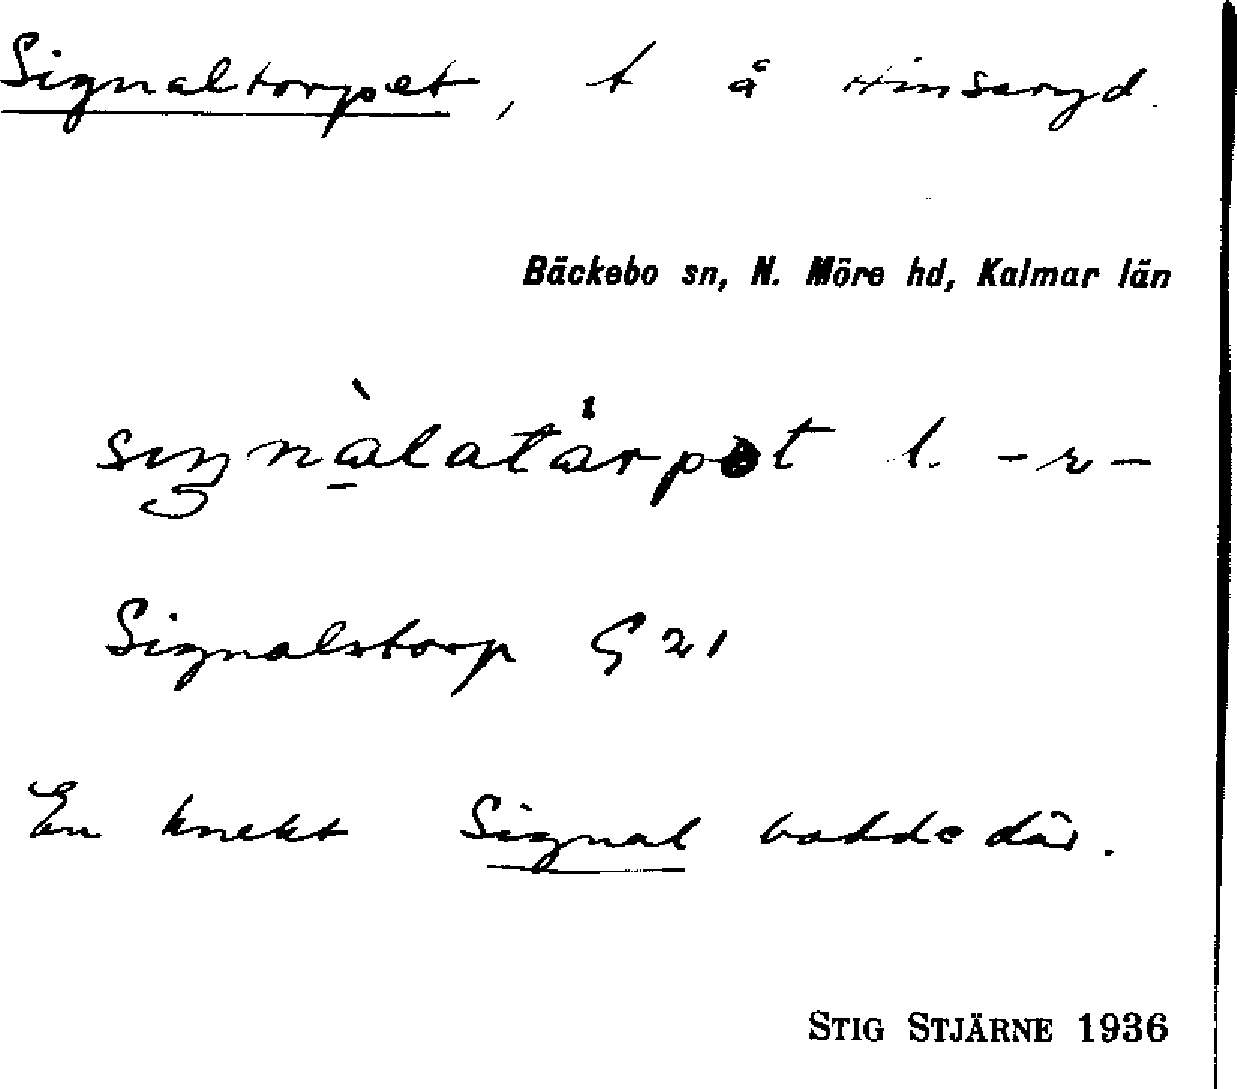 Signaltorpet, t å Hinsaryd.
Bäckebo sn, N. Möre hd, Kalmar län
l. -r-
Signalstorp G 21
En knekt Signal bodde där.
STIG STJÄRNE 1936